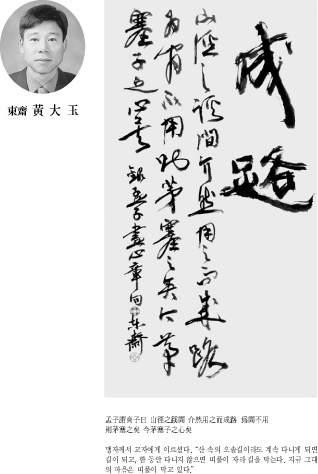 東齋 黃大玉
成路
山徑之蹊間介然用之而成路
爲間不用則茅塞之矣今茅
塞子之心矣 錄孟子盡心章句 東齋
孟子謂高子曰 山徑之蹊間 介然用之而成路 爲間不用
則茅塞之矣 今茅塞子之心矣
맹자께서 고자에게 이르셨다. "산 속의 오솔길이라도 계속 다니게 되면
길이 되고, 한 동안 다니지 않으면 띠풀이 자라 길을 막는다. 지금 그대
의 마음은 띠풀이 막고 있다."